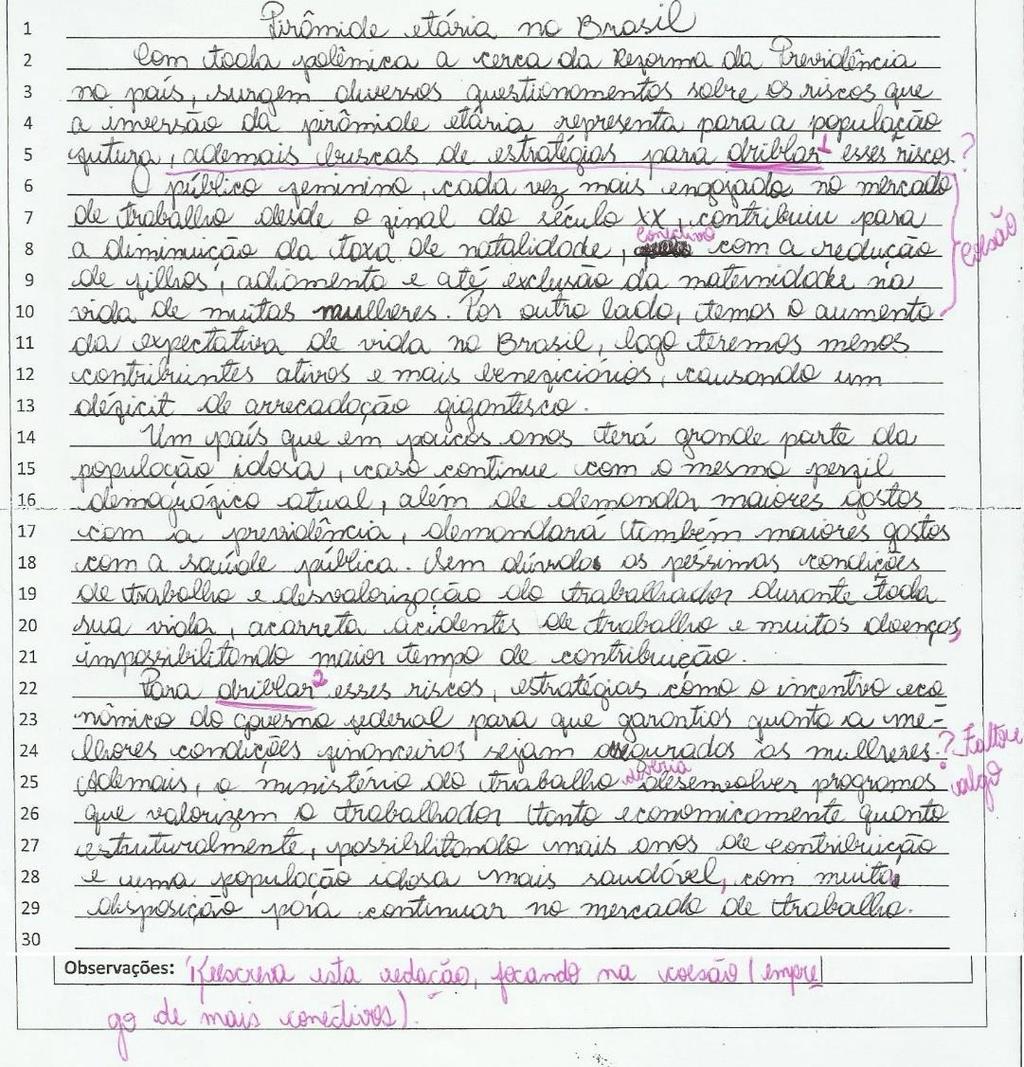 1 Pirâmide etária no Brasil
2 Com toda polêmica a cerca da Reforma da Previdência
3 no país, surgem diversos questionamentos sobre os riscos que
4 a inversão da pirâmide etária representa para a população
5 futura, ademais buscas de estratégias para driblar¹ esses riscos. ?
6 O público feminino, cada vez mais engajado no mercado
7 de trabalho desde o final do século XX, contribuiu para
conectivo
8 a diminuição da taxa de natalidade, com a redução
coesão
9 de filhos, adiamento e até exclusão da maternidade na
10 vida de muitas mulheres. Por outro lado, temos o aumento
11 da expectativa de vida no Brasil, logo teremos menos
12 contribuintes ativos e mais beneficiários, causando um
13 déficit de arrecadação gigantesco.
14 Um país que em poucos anos terá grande parte da
15 população idosa, caso continue com o mesmo perfil
16 demográfico atual, além de demandar maiores gastos
17 com a previdência, demandará também maiores gastos
18 com a saúde pública. Sem dúvidas as péssimas condições
19 de trabalho e desvalorização do trabalhador durante toda
20 sua vida, acarreta acidentes de trabalho e muitas doenças,
21 impossibilitando maior tempo de contribuição.
22 Para driblar² esses riscos, estratégias como o incentivo eco
23 nômico do governo federal para que garantias quanto a me-
24 lhores condições financeiras sejam asseguradas as mulheres. ? Faltou
algo
deveria
25 Ademais, o ministério do trabalho desenvolver programas
26 que valorizem o trabalhador tanto economicamente quanto
27 estruturalmente, possibilitando mais anos de contribuição
28 e uma população idosa mais saudável, com muita
29 disposição para continuar no mercado de trabalho.
30
Observações: Reescreva esta redação, focando na coesão (empre
go de mais conectivos).